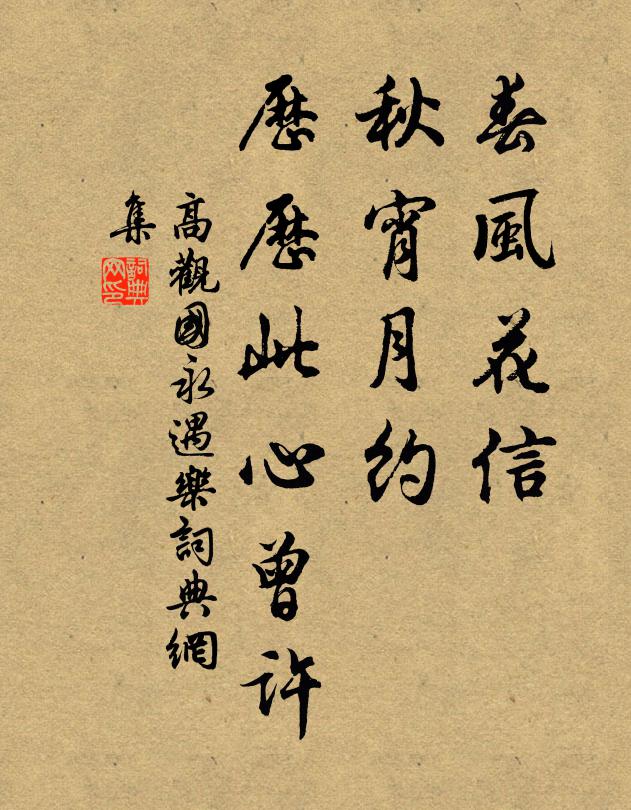 春風花信
秋宵月約
歷歷此心曾許
高觀國永遇樂詞典網
集
詞典
网印